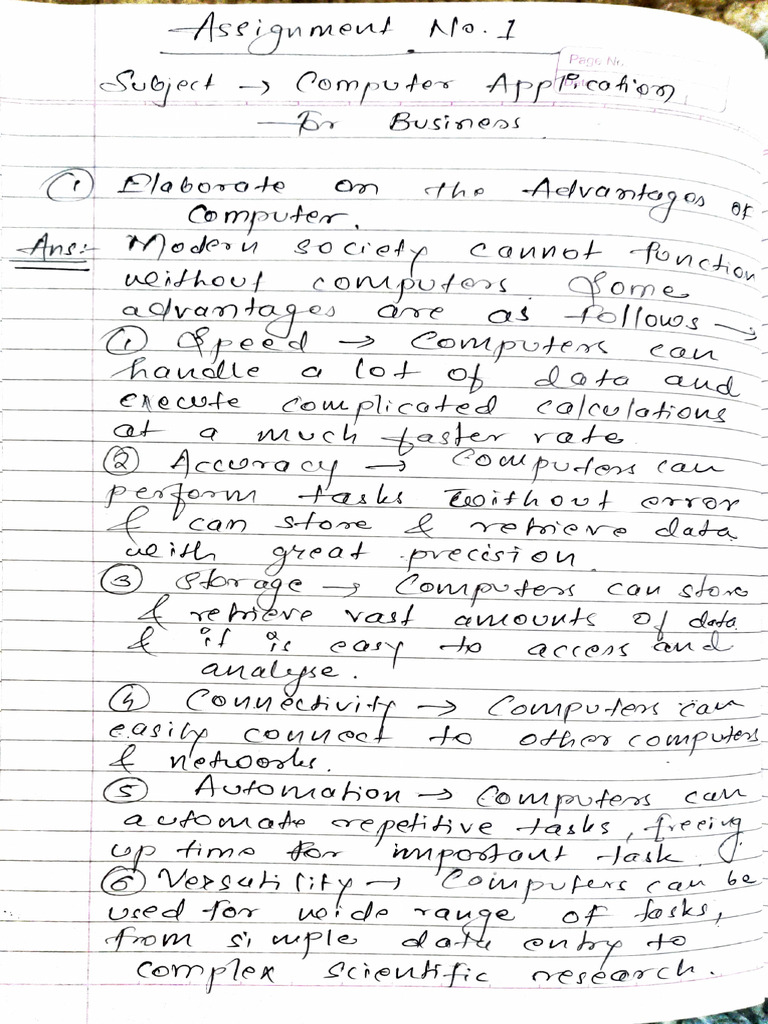 Assignment No. 1
Page No.
Subject → Computer Application
For Business
① Elaborate on the Advantages of
Computer.
Ans:- Modern society cannot function
without computers. Some
advantages are as follows →
① Speed → Computers can
handle a lot of data and
execute complicated calculations
at a much faster rate.
② Accuracy → Computers can
perform tasks without error
& can store & retrieve data
with great precision.
③ Storage → Computers can store
& retrieve vast amounts of data
& it is easy to access and
analyse.
④ Connectivity → Computers can
easily connect to other computers
& networks.
⑤ Automation → Computers can
automate repetitive tasks, freeing
up time for important task.
⑥ Versatility → Computers can be
used for wide range of tasks,
from simple data entry to
complex scientific research.